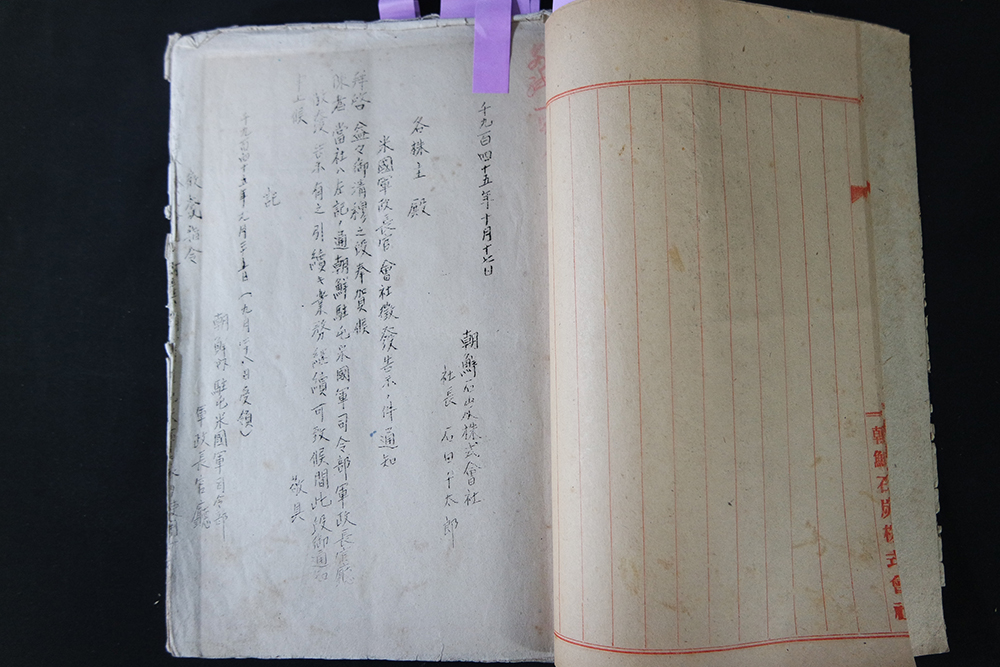 朝鮮石炭株式會社
千九百四十五年十月十六日
朝鮮石炭株式會社
社長 石田千太郎
各株主 殿
米國軍政長官會社徵發告示ノ件通知
拝啓 益々御清穆之段奉賀候
陳者 當社ハ左記ノ通朝鮮駐屯米國軍司令部軍政長官廳
徵發告示有之引續キ業務継續可致候間此段御通知
申上候
敬具
記
千九百四十五年九月二十五日(九月二十八日受領)
朝鮮駐屯米國軍司令部
軍政長官廳
徵發指令